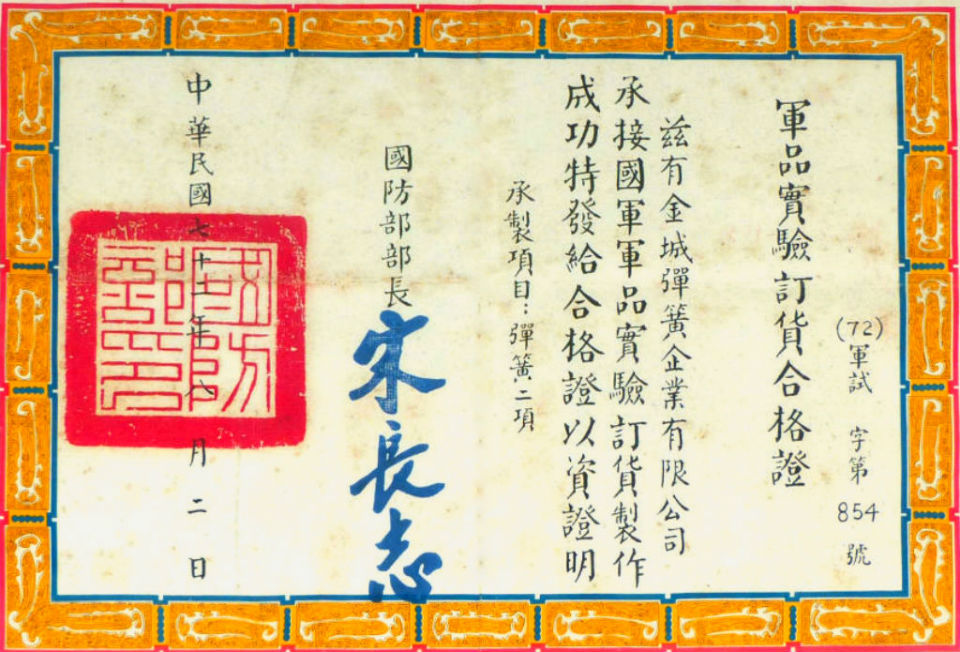 (72)軍試字第854號
軍品實驗訂貨合格證
茲有金城彈簧企業有限公司
承接國軍軍品實驗訂貨製作
成功特發給合格證以資證明
承製項目：彈簧二項
國防部部長
宋長志
中華民國七十二年八月二日
國防部印